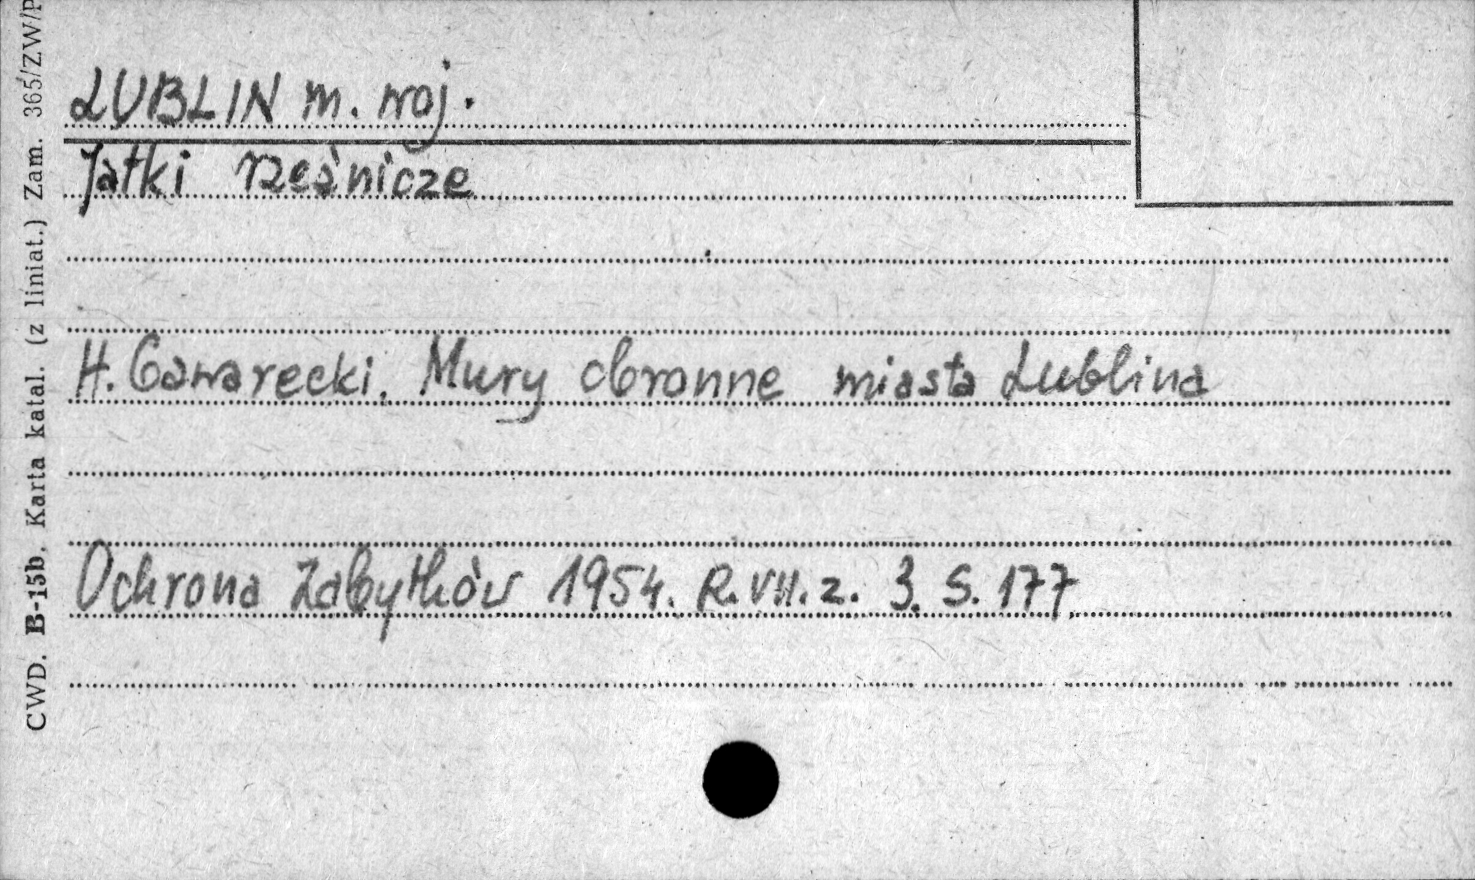 LUBLIN m. woj.
Jatki rzeźnicze
H. Gawarecki. Mury obronne miasta Lublina
Ochrona Zabytków 1954. R. VII. z. 3. S. 177
CWD. B-15b. Karta katal. (z liniat.) Zam. 365/ZW/P